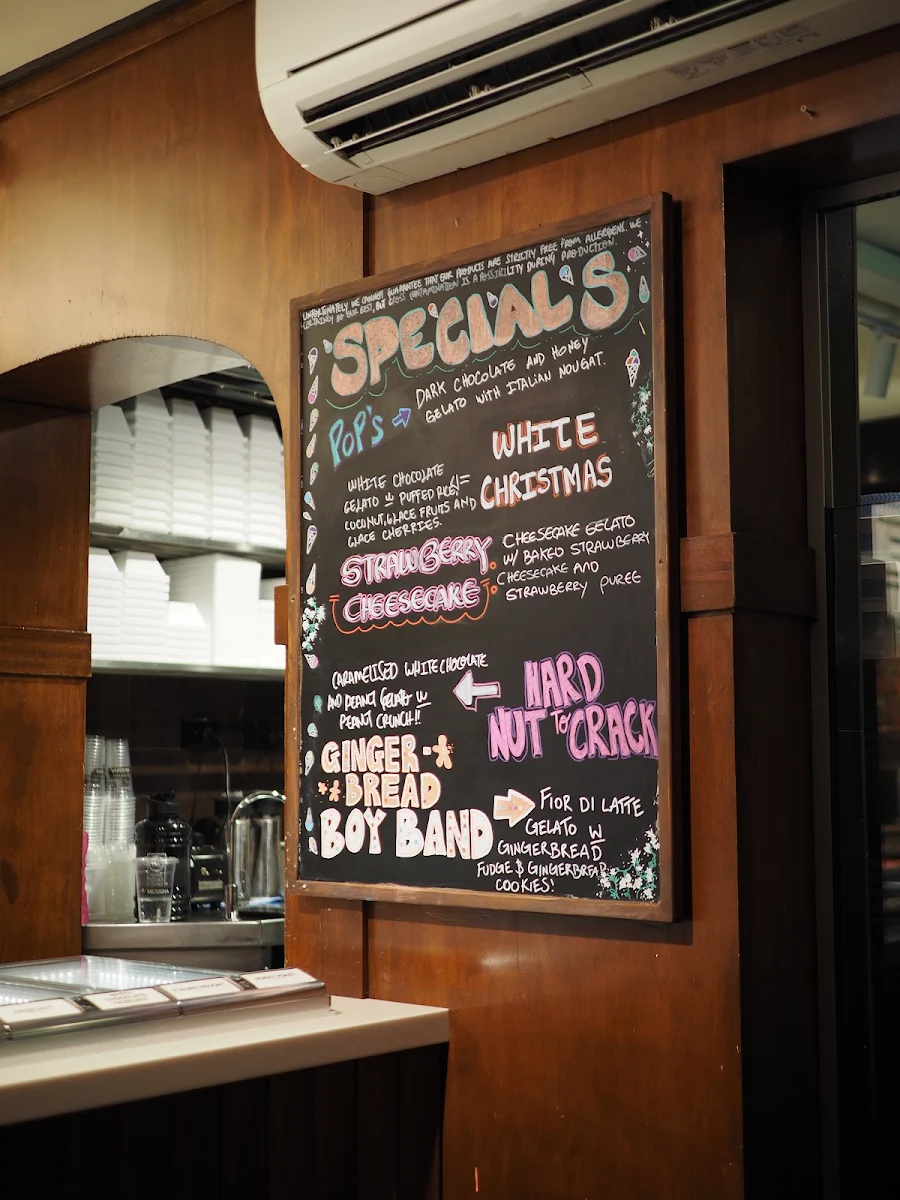 UNFORTUNATELY WE CANNOT GUARANTEE THAT OUR PRODUCTS ARE STRICTLY FREE FROM ALLERGENS. WE
CERTAINLY DO OUR BEST, BUT CROSS CONTAMINATION IS A POSSIBILITY DURING PRODUCTION.
SPECIALS
POP'S
DARK CHOCOLATE AND HONEY
GELATO WITH ITALIAN NOUGAT.
WHITE
CHRISTMAS
WHITE CHOCOLATE
GELATO W PUFFED RICE,
COCONUT, GLACE FRUITS AND
GLACE CHERRIES.
STRAWBERRY
CHEESECAKE
CHEESECAKE GELATO
W/ BAKED STRAWBERRY
CHEESECAKE AND
STRAWBERRY PUREE
CARAMELISED WHITE CHOCOLATE
AND PEANUT GELATO W
PEANUT CRUNCH!!
HARD
NUT TO CRACK
GINGER-
BREAD
BOY BAND
FIOR DI LATTE
GELATO W
GINGERBREAD
FUDGE & GINGERBREAD
COOKIES!
MESSINA